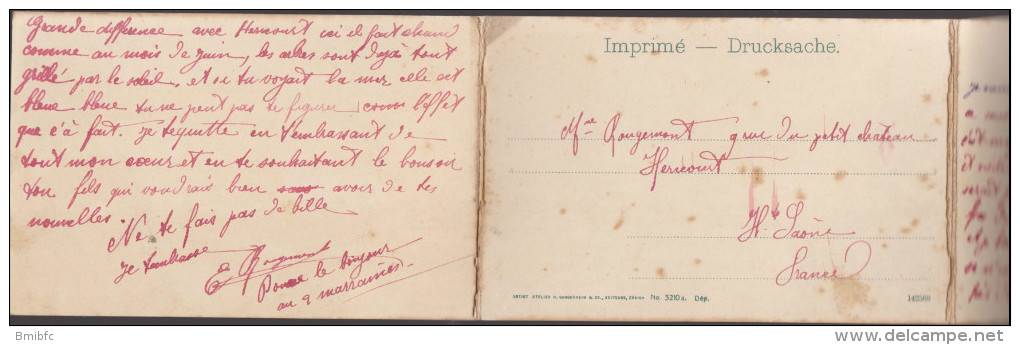 Grande difference avec Hericourt ici il fait chaud
comme au mois de juin, les arbres sont deja tout
grillé par le soleil, et si tu voyait la mer elle est
bleue bleue tu ne peut pas te figurer comm l'effet
que c'à fait. je te quitte en t'embrassant de
tout mon cœur et en te souhaitant le bonsoir
ton fils qui voudrais bien avoir de tes
nouvelles.
Ne te fais pas de bille
je t'embrasse
E Rougemont
Donne le bonjour
au 2 marraines.
Imprimé — Drucksache.
Mme Rougemont 9 rue du petit chateau
Hericourt
Hte Saône
France
No. 3210 a. Dép.
142560
Bmibfc
www.delcampe.net